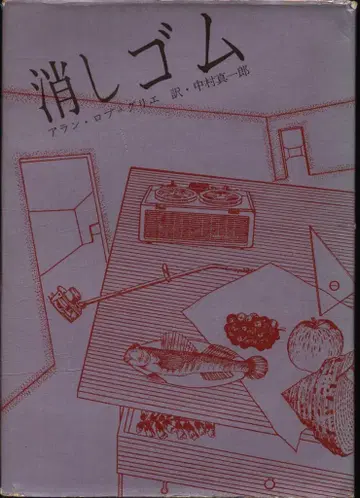 消しゴム
アラン・ロブ＝グリエ 訳・中村真一郎